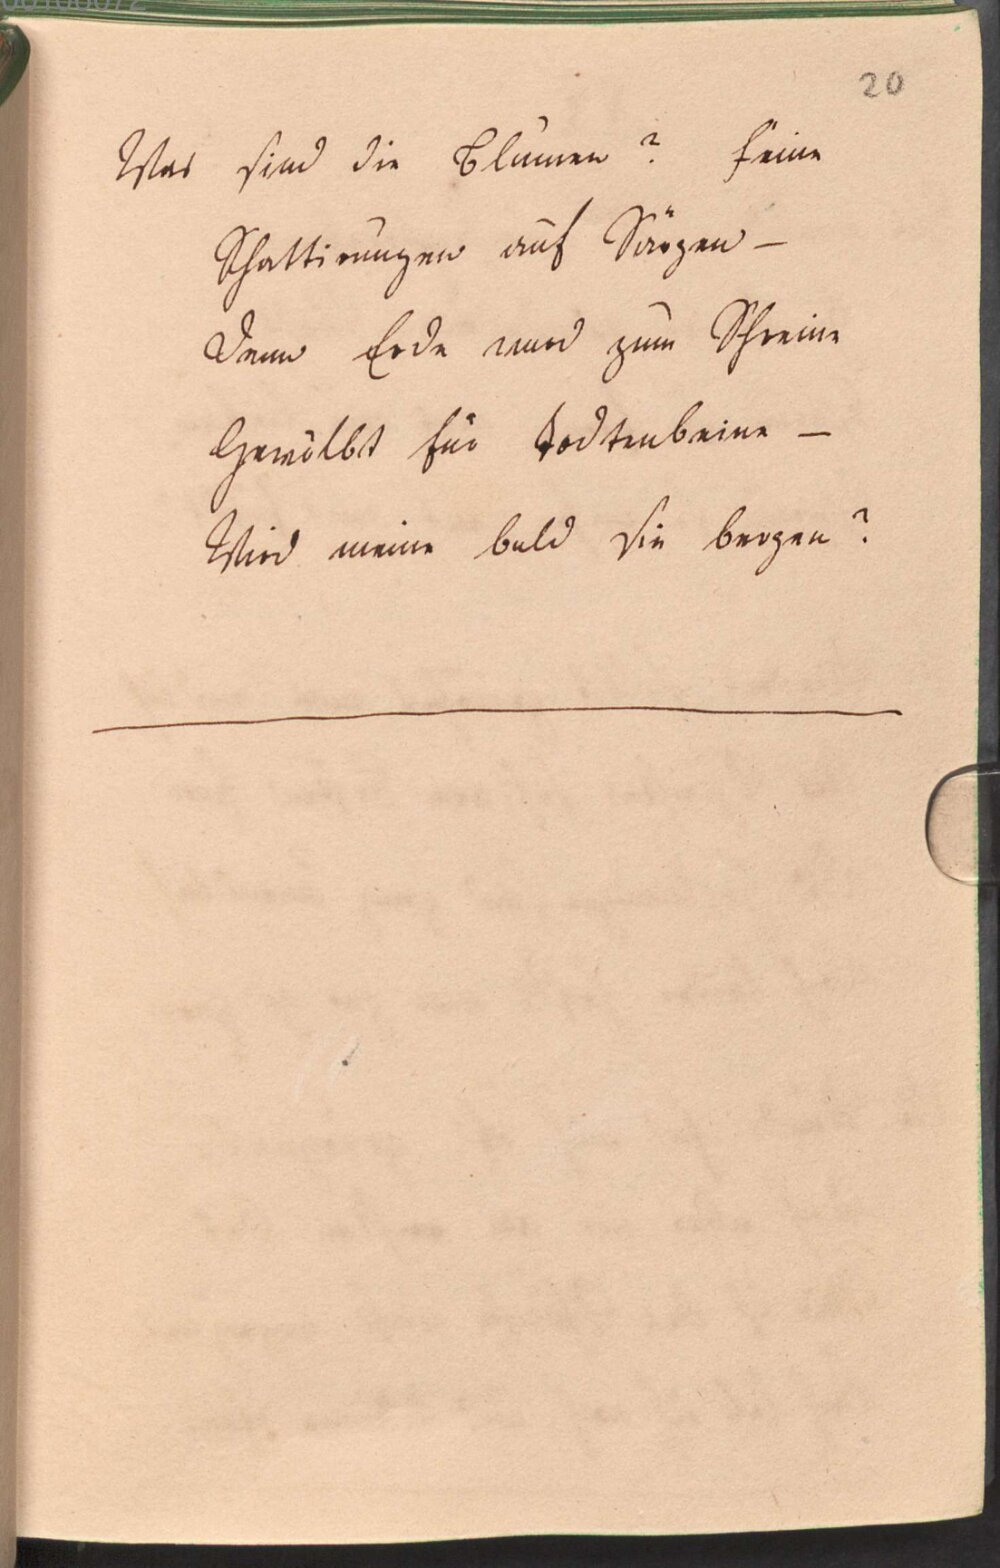 20
Was sind die Blumen? feine
Schattirungen auf Särgen –
Denn Erde ward zum Schreine
Gewölbt für Todtenbeine –
Wird meine bald sie bergen?